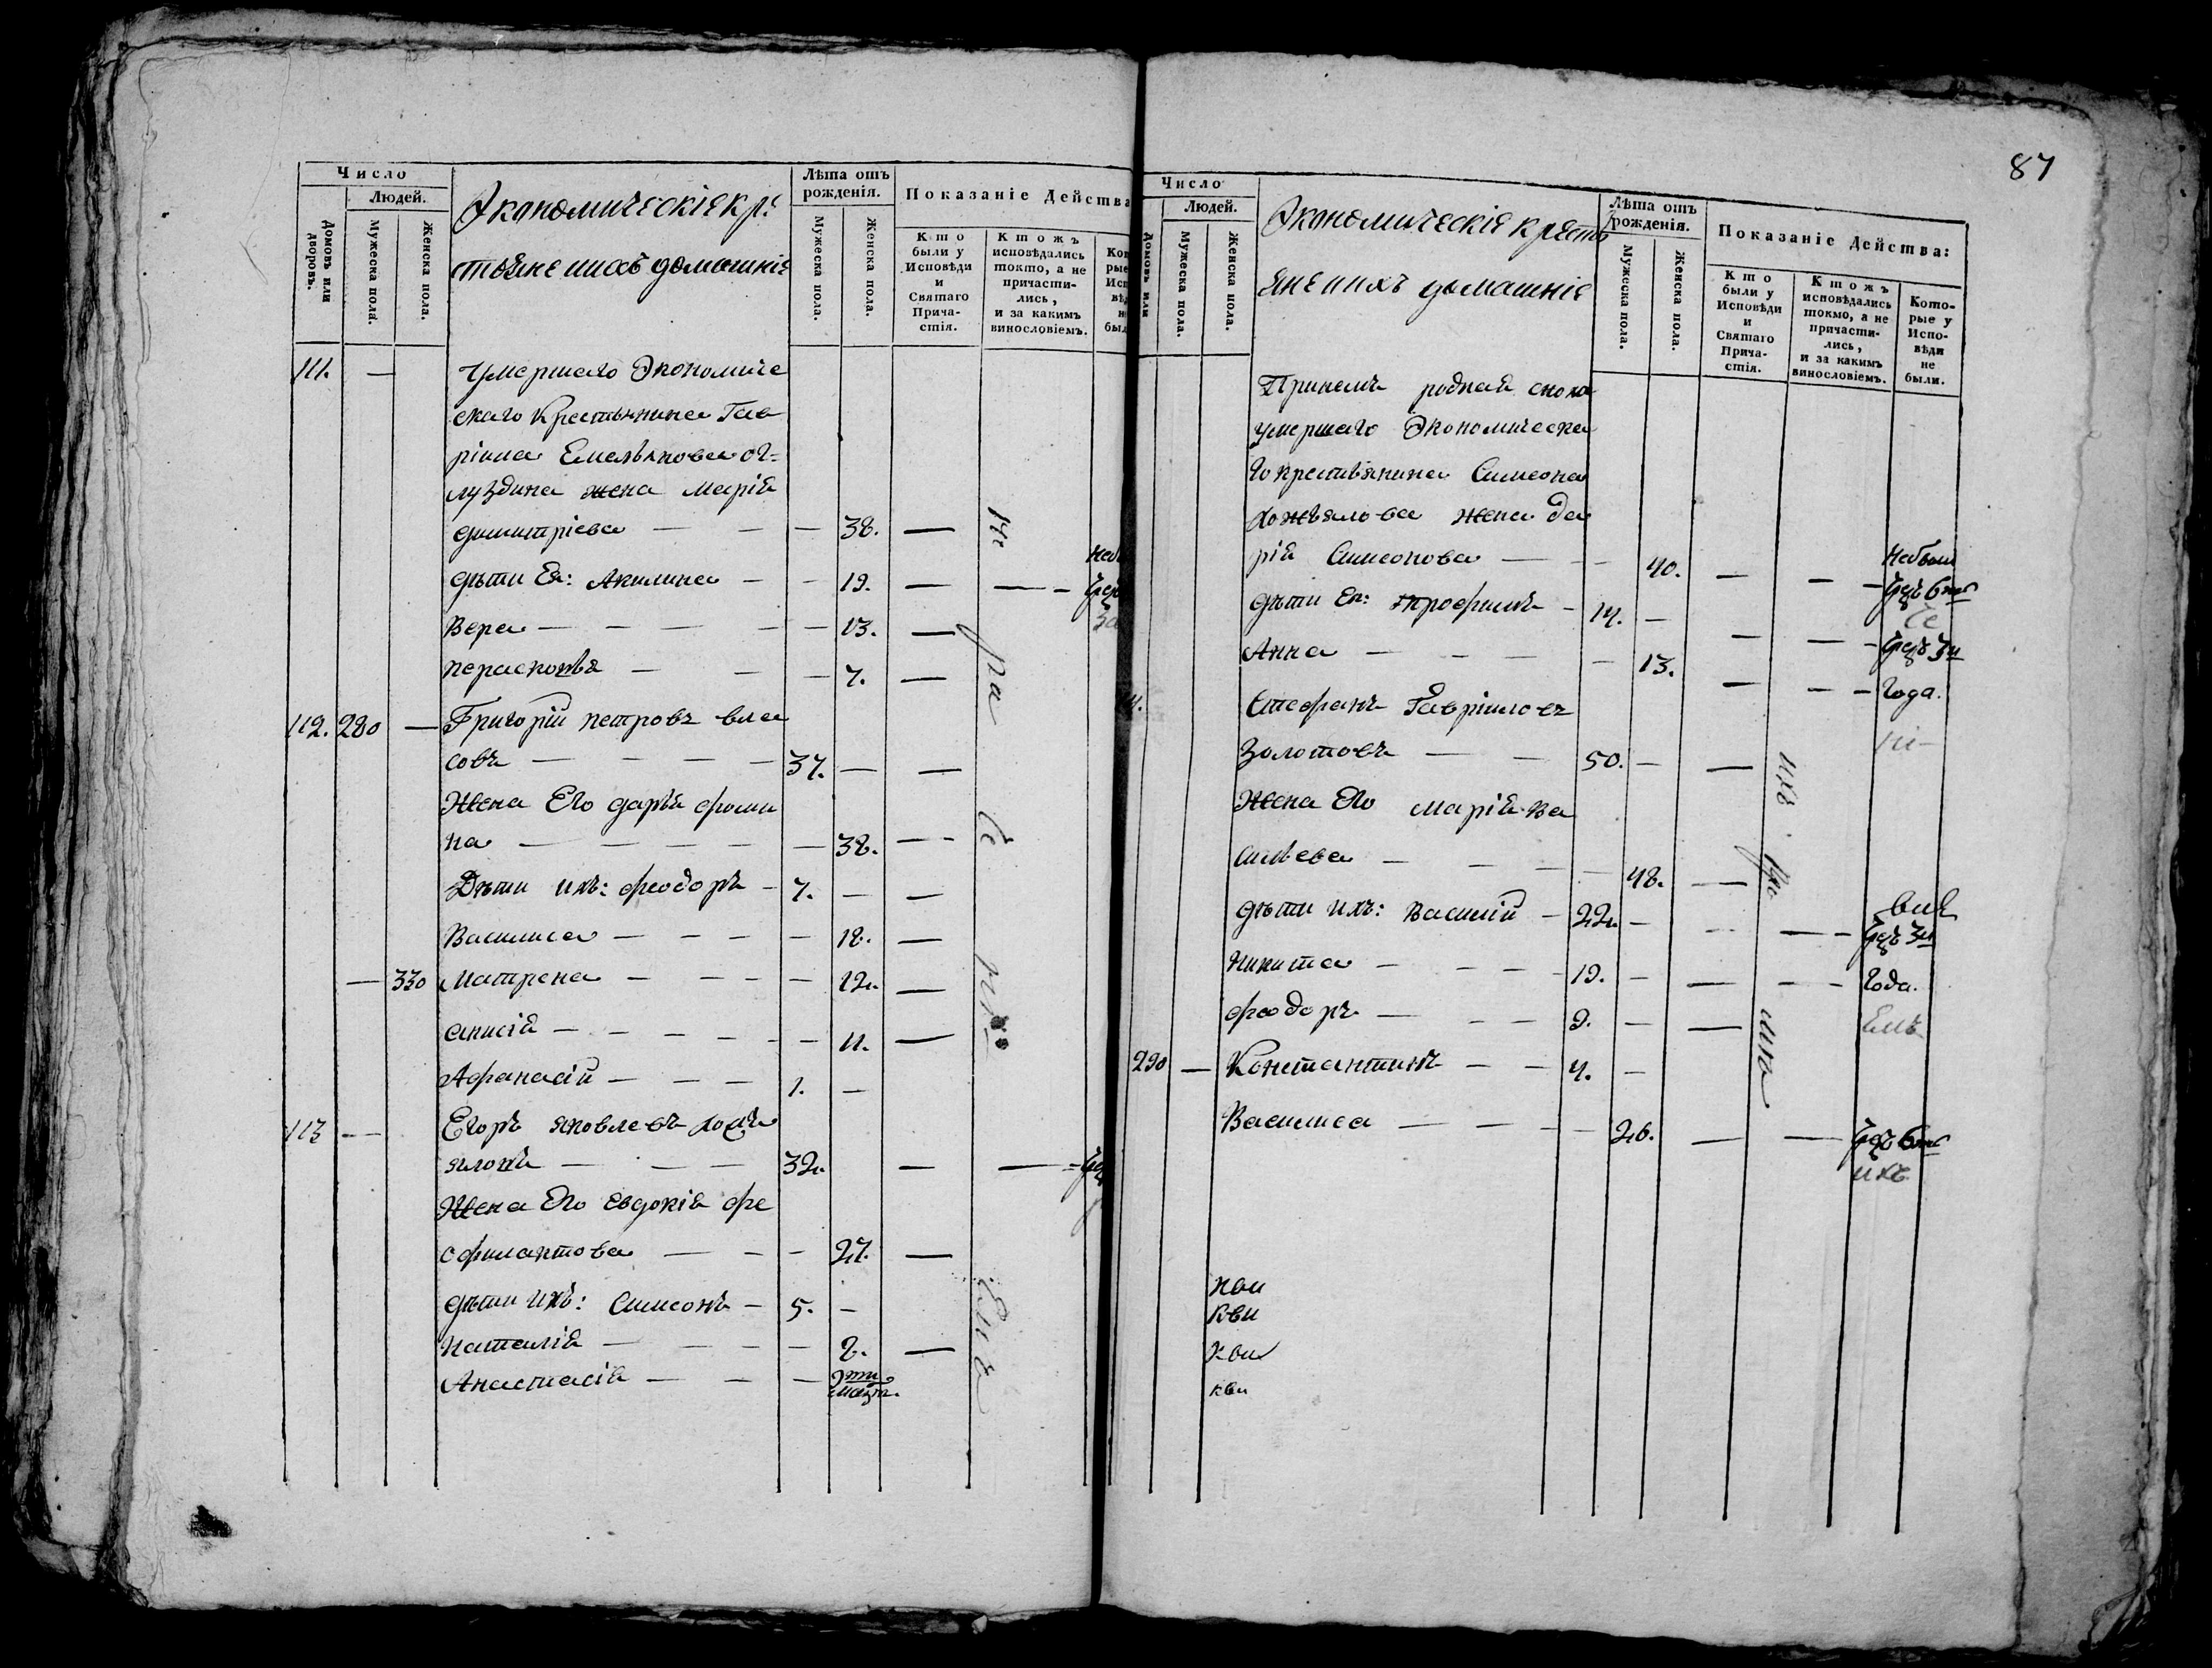 Число
Людей.
Домовъ или дворовъ.
Мужеска пола.
Женска пола.
Экономическіе кре
стьяне и ихъ домашніе
Лѣта отъ рожденія.
Мужеска пола.
Женска пола.
Показаніе Действа
Кто были у Исповѣди и Святаго Прича-стія.
Ктожъ исповѣдались токмо, а не причасти-лись, и за какимъ винословіемъ.
111. — Умершаго Экономиче
скаго Крестьянина Гав
ріила Емельянова
жена Марія
Димитріева — — — 38. —
Дѣти Ея: Акилина — — 19. — —
Вера — — — — — 13. —
Парасковья — — — 7. —
112. 280 — Григорій Петровъ Вла
совъ — — — — 37. — —
Жена Его Дарья Фоми
на — — — — — 38. — -
Дѣти ихъ: Феодоръ — 7. — —
Василиса — — — — 18. —
— 330 Матрена — — — — 12. —
Анисія — — — — — 11. —
Афанасій — — — 1. —
113 — Егоръ Яковлевъ
— — — 32. — —
Жена Его Евдокія Фе
офилактова — — — 27. —
Дѣти ихъ: Симеонъ — 5. —
Наталія — — — — 8. —
Анастасія — — —
87
Число
Людей.
Домовъ или
Мужеска пола.
Женска пола.
Экономическіе кресть
яне и ихъ домашніе
Лѣта отъ рожденія.
Мужеска пола.
Женска пола.
Показаніе Действа:
Кто были у Исповѣди и Святаго Прича-стія.
Ктожъ исповѣдались токмо, а не причасти-лись, и за какимъ винословіемъ.
Кото-рые у Испо-вѣди не были.
При немъ родная сноха
умершаго Экономическа
го крестьянина Симеона
жена Да
рія Симеонова — — 40. — — Небыли
Дѣти Ея: Трофимъ — 14. —
Анна — — — — 13.
Стефанъ Гавріиловъ года.
Золотовъ — — 50. — —
Жена Его Марія Ва
сильева — — — — 48. —
Дѣти ихъ: Василій — 22. —
Никита — — — — 19. — — — — года.
Феодоръ — — — 9. — —
290 — Константинъ — — 4. —
Василиса — — — — 26. — —
ихъ
кви
кви
кви
кви